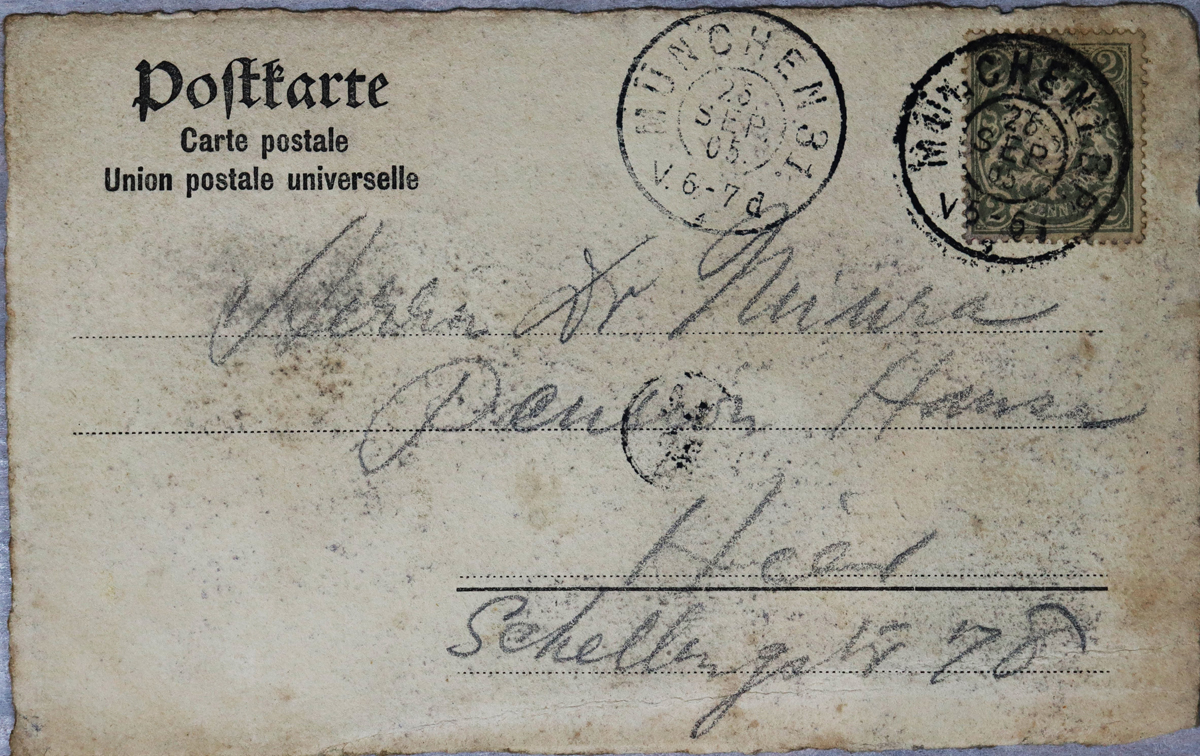 Postkarte
Carte postale
Union postale universelle
MÜNCHEN 31.
25.
SEP
05.
V. 6-7 d
MÜNCHEN
26
SEP
05
2 2
PFENNIG
2 2
Herrn Dr Miura
Pension Hansa
Hier
Schellingstr 78